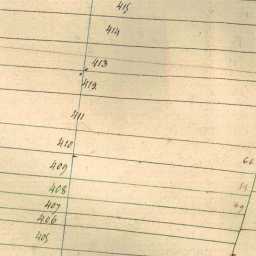 415
414
413
412
411
410
409
408
407
406
405